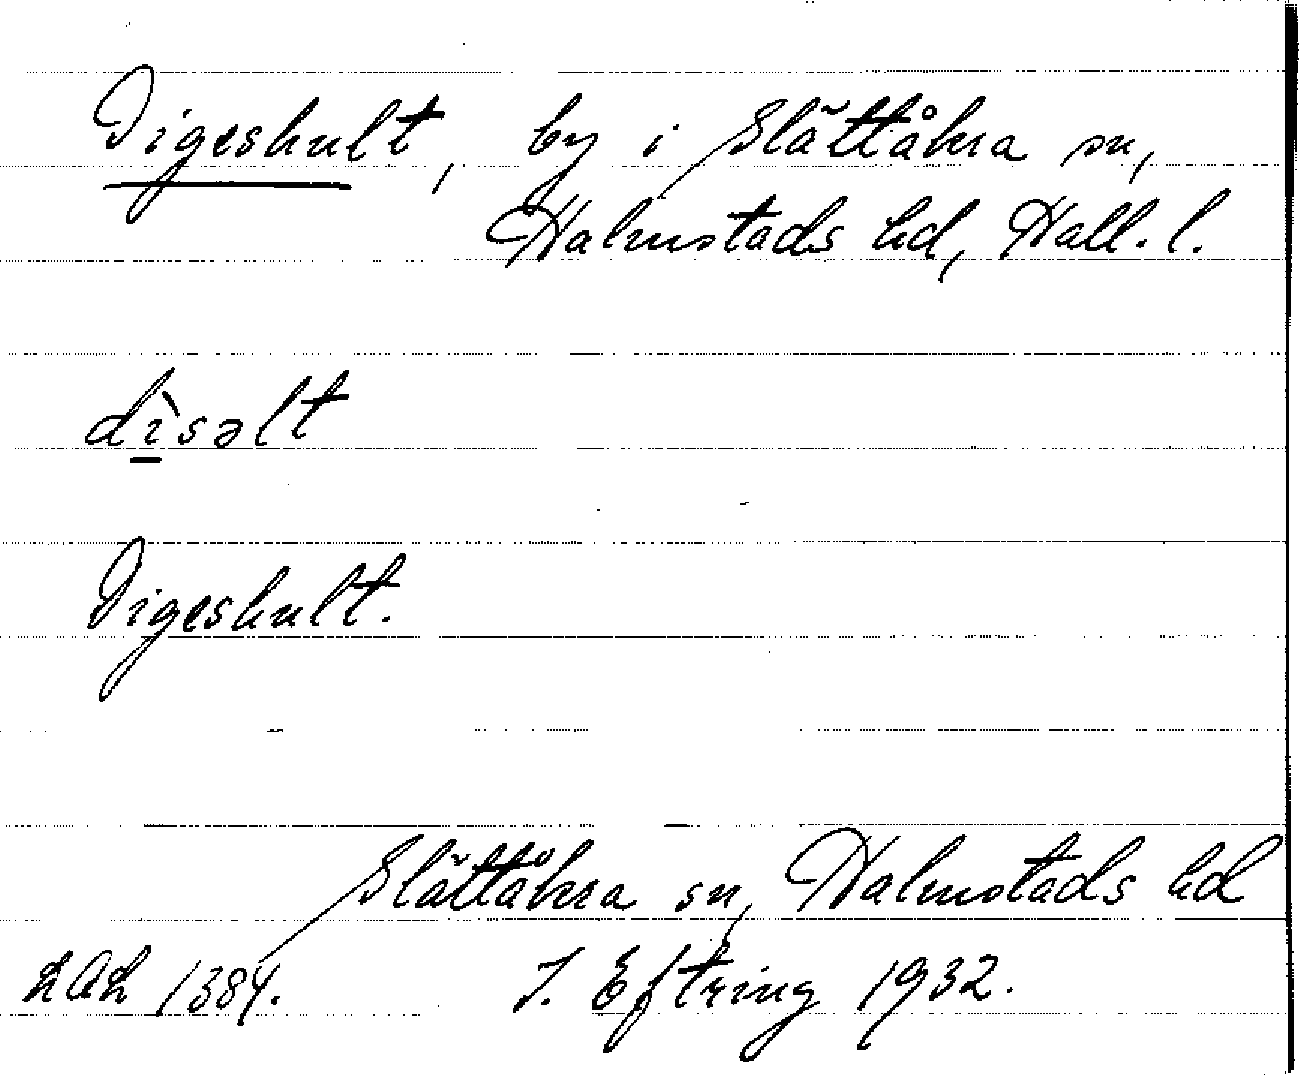 Digeshult, by i Slättåkra sn,
Halmstads hd, Hall. l.
dìsəlt
Digeshult.
Slättåkra sn, Halmstads hd
LAL 1384. J. Eftring 1932.